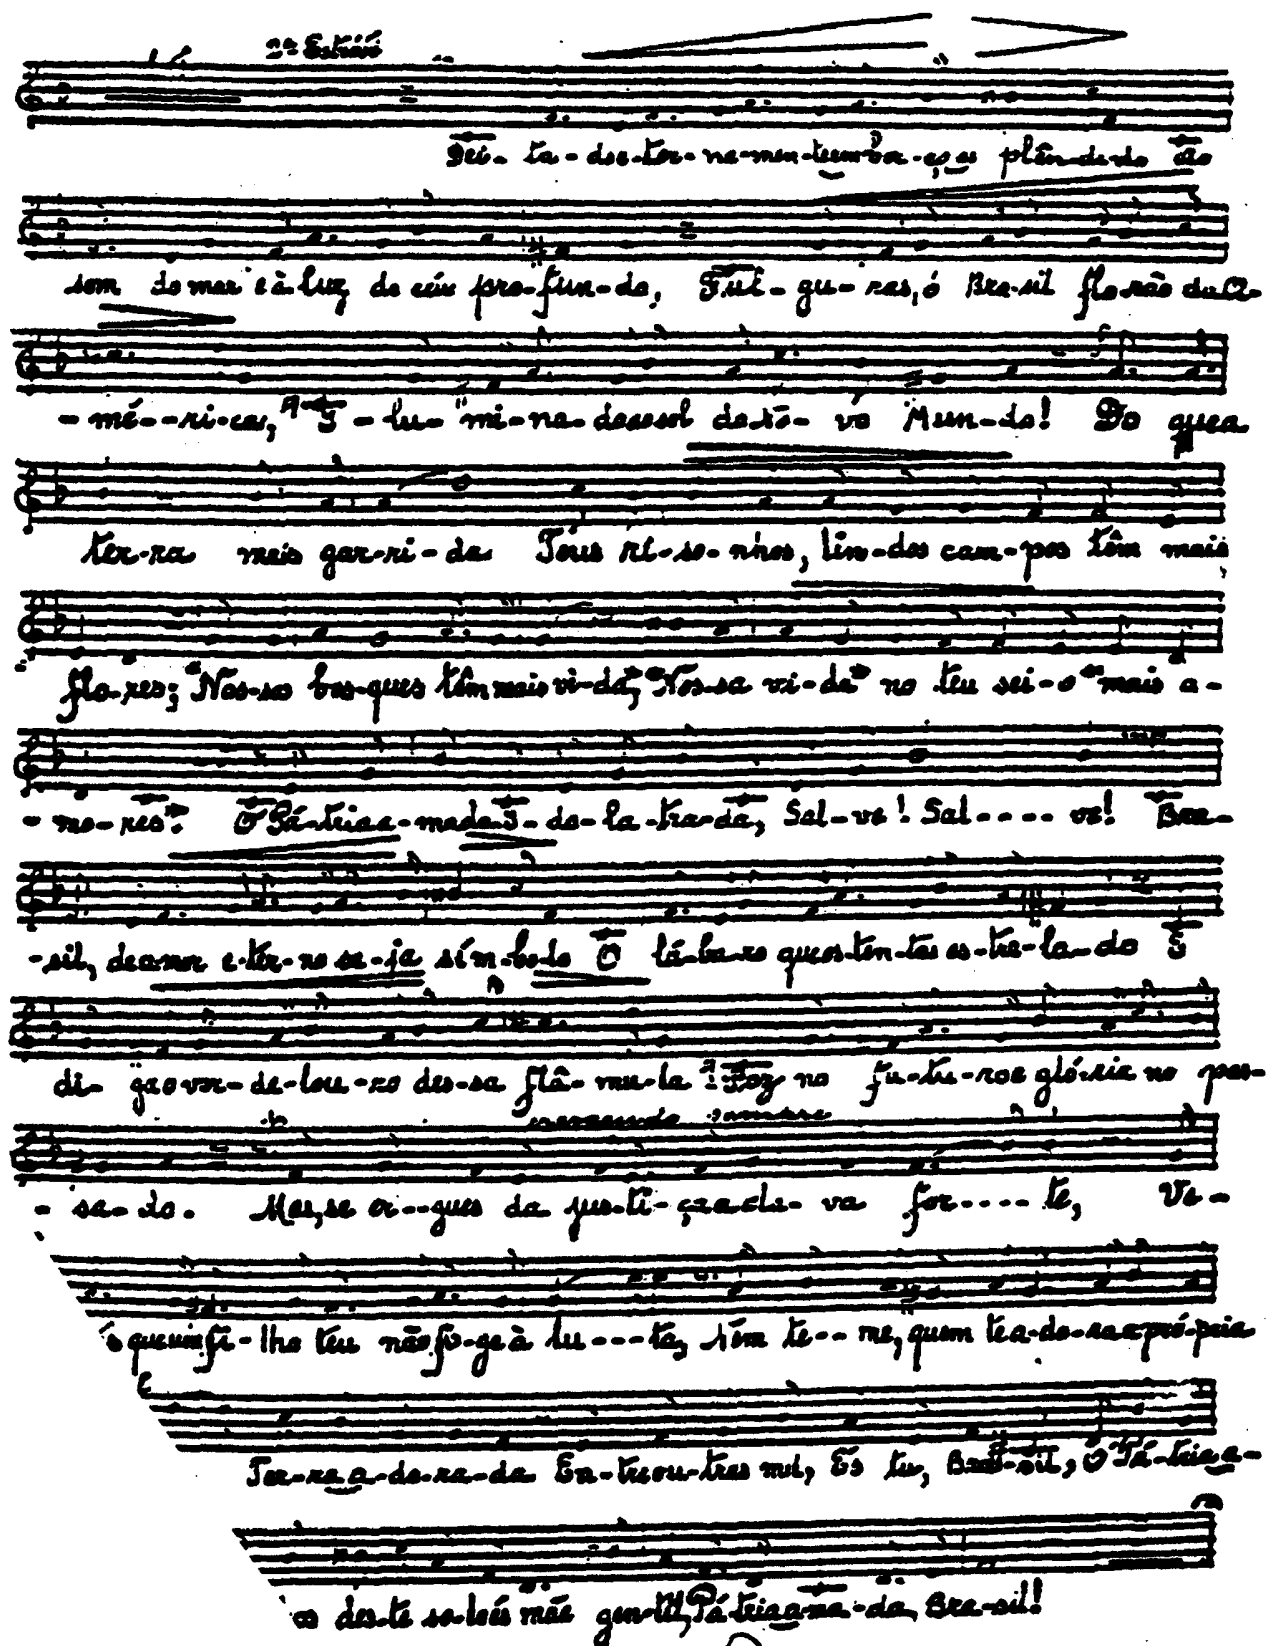 Dei- ta-do-e-ter-na-men-teem ber-ço es plên-di-do ao
som do mar e à luz do céu pro-fun-do, Ful-gu-ras, ó Bra-sil flo-rão da A-
-mé--ri-ca, I-lu-mi-na-do ao sol do No-vo Mun-do! Do que a
ter-ra mais gar-ri-da Teus ri-so-nhos, lin-dos cam-pos têm mais
flo-res; "Nos-sos bos-ques têm mais vi-da", "Nos-sa vi-da" no teu sei-o "mais a-
-mo-res". Ó Pá-tria a-mada I-do-la-tra-da, Sal-ve! Sal---- ve! Bra-
-sil, de amor e-ter-no se-ja sím-bo-lo O lá-ba-ro que os-ten-tas es-tre-la-do E
di- ga o ver-de-lou-ro des-sa flâ-mu-la : Paz no fu-tu-ro e gló-ria no pas-
- sa-do. Mas, se er--gues da jus-ti-ça a cla-va for---- te, Ve-
s que um fi-lho teu não fo-ge à lu---ta, Nem te-- me, quem te a-do-ra a pró-pria
Ter-ra a-do-ra-da En-tre ou-tras mil, És tu, Bra-sil, Ó Pá-tria a-
os des-te so-lo és mãe gen-til, Pá-tria a-ma-da, Bra-sil!